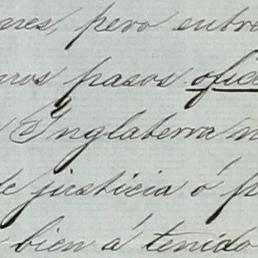 ares, pero entre
mos pasos ofic
Inglaterra n
de justicia ó p
bien á tenido